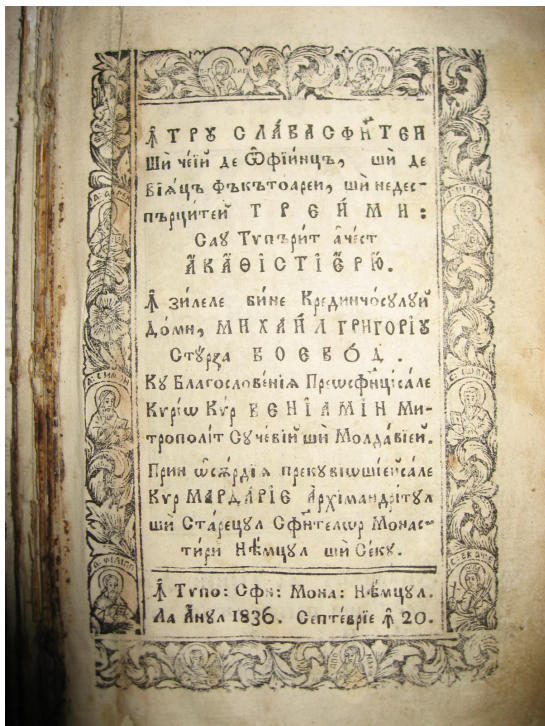 Ꙟ ТРУ СЛА́ВА СФИ́НТЕЙ
Ши че́ій де Ѿфіи́нцъ, ши́ де
вїѧ́цъ фъкъто́арей, ши́ недес-
пърци́тей ТРЕ́ИМИ:
Сау Тѵпъри́т ачѐст
АКАѲІСТІЄ́РЮ.
Ꙟ зи́леле би́не Крединчо́сулуй
До́мн, МИХАИ́Л ГРИГОРІУ
Сту́рза ВОЕВО́Д.
Ку Благослове́нїѧ Преѡсфинцїе́й сале
Кѵ́рїѡ Кѵ́р ВЕНІАМІ́Н Ми-
трополі́т Суче́вій ши́ Молда́віей.
Прин ѡсѫ́рдїѧ прекувїѡші́ей сале
Кѵр МАРДА́РІЄ Архїмандрі́тул
ши́ Ста́рецул Сфи́нтелѡр Монас-
ти́ри Нѣ́мцул ши́ Се́ку.
Ꙟ Тѵпо: Сфи: Мона: Нѣ́мцул.
Ла А́нул 1836. Септе́врїе Ꙟ 20.